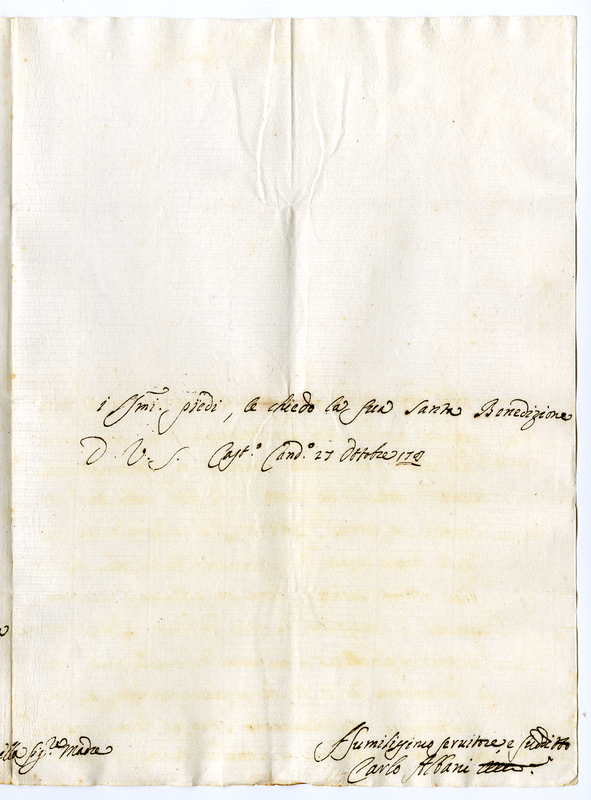 i SSmi. piedi, le chiedo la sua Santa Benedizione
D. V. S. Cast.º Cand.º 27 Ottobre
Sig.ra Madre
Humilissimo servitore e suddito
Carlo Albani